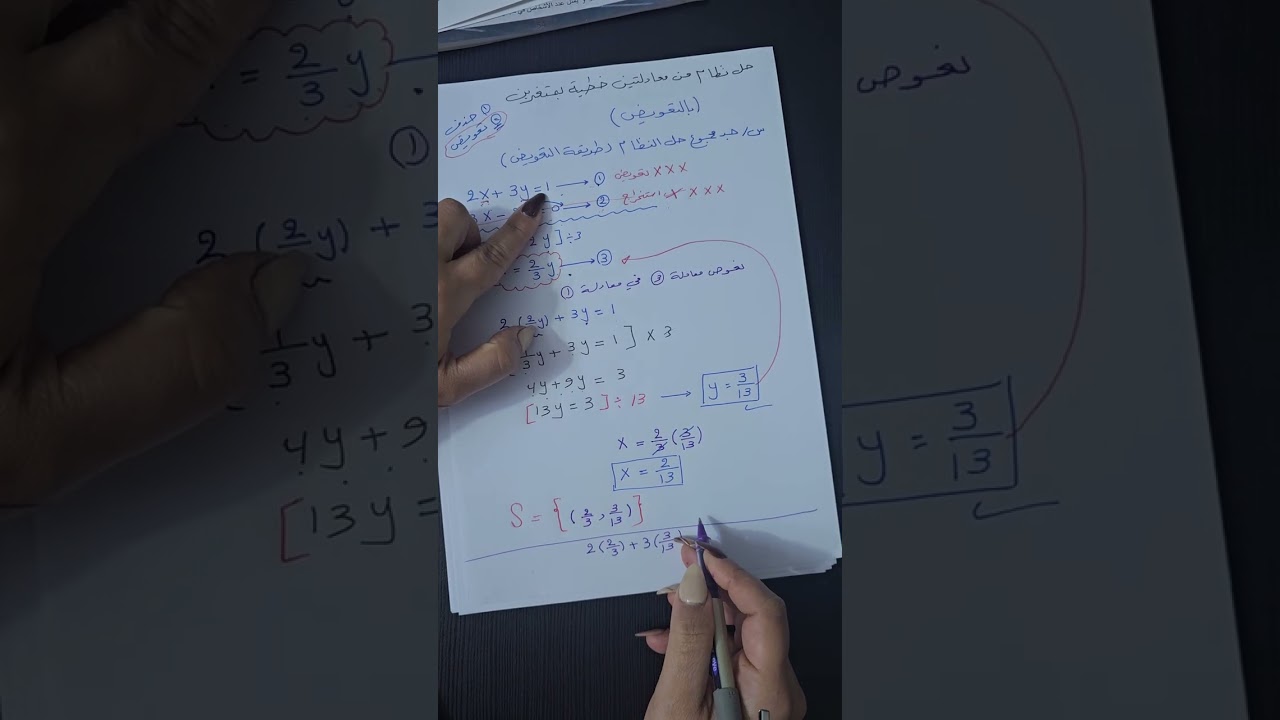 حل نظام من معادلتين خطية بمتغرين
(بالتعويض)
① حذف
② تعويض
س/ جد مجموع حل النظام (طريقة التعويض)
2x + 3y = 1 → ① تعويض x x x
x - = 0 → ② استخراج x x x
2y ] ÷ 3
= 2/3 y → ③
نعوض معادلة ③ في معادلة ①
2 (2/3 y) + 3y = 1
/3 y + 3y = 1 ] x 3
4y + 9y = 3
[ 13y = 3 ] ÷ 13 → y = 3/13
x = 2/3 (3/13)
x = 2/13
S = { (2/3 , 3/13) }
2 (2/3) + 3 (3/13)